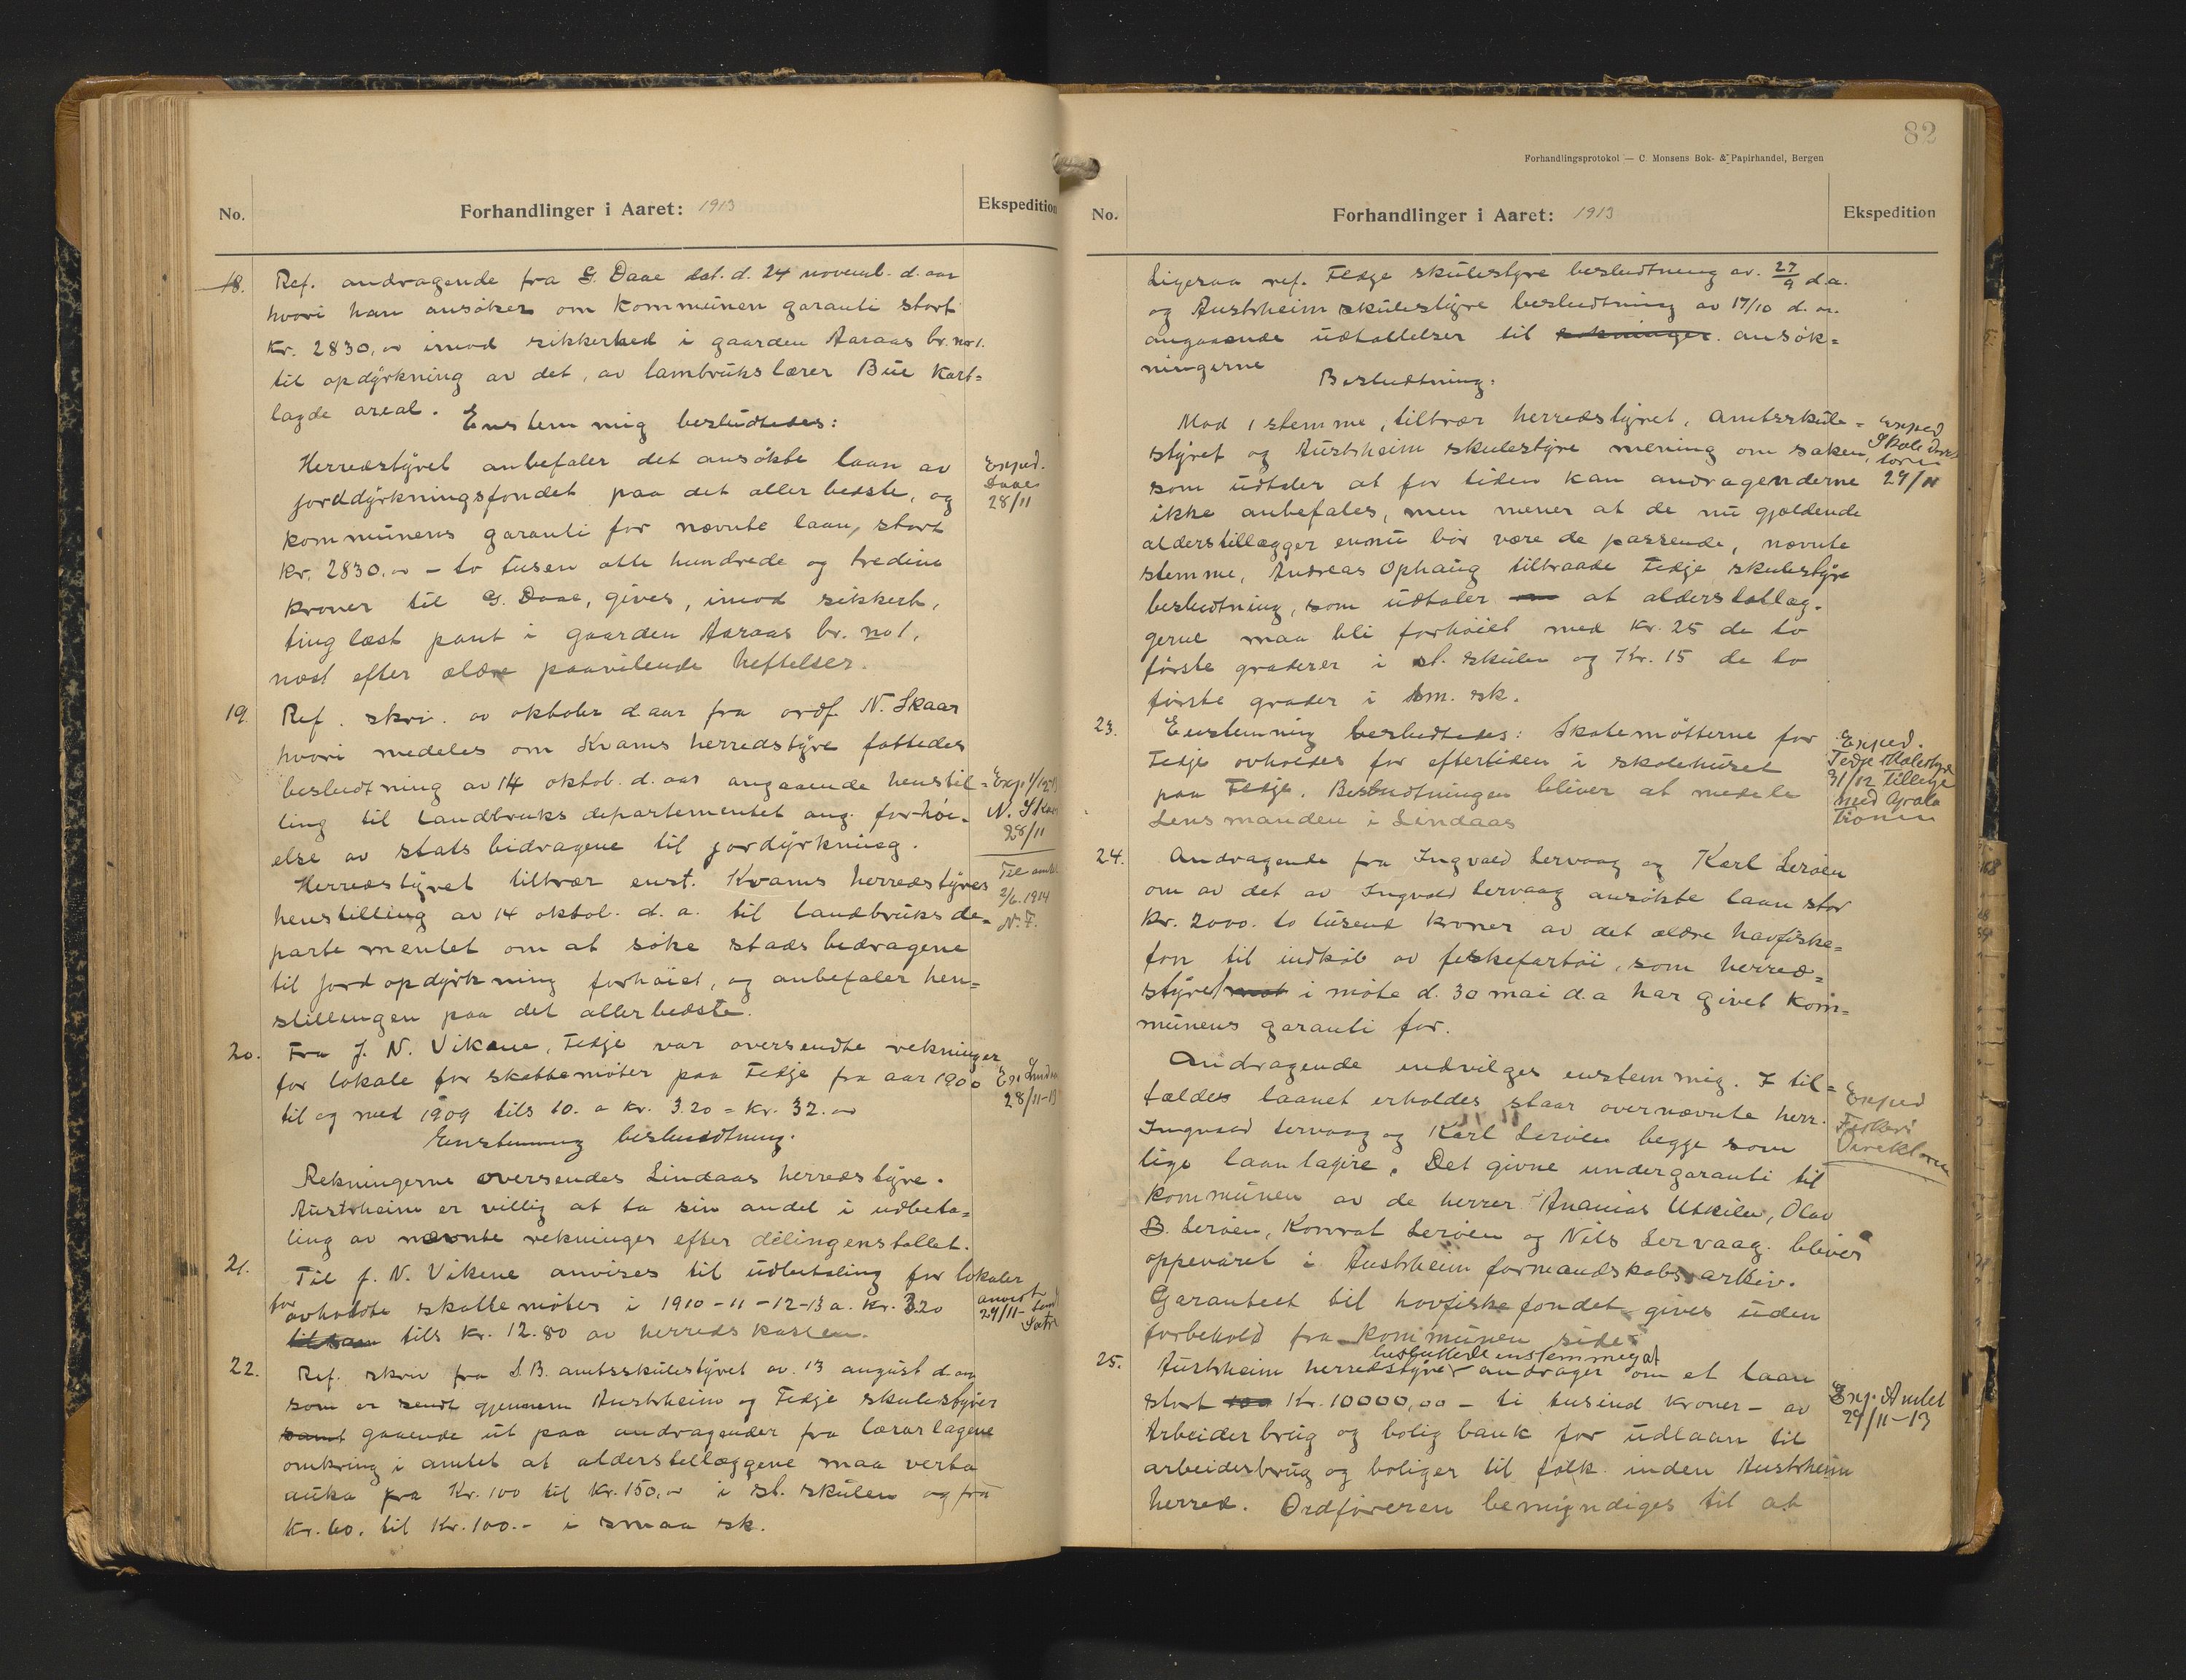 No.
Forhandlinger i Aaret: 1913
Ekspedition
18. Ref. andragende fra G. Daae dat. d. 24 novemb. d. aar
hvori han ansøker om kommunen garanti stort
Kr. 2830,00 imod sikkerhed i gaarden Aaraas br. no 1.
til opdyrkning av det, av lambrukslærer Bue kart=
lagde areal.
Enstemmig besluttedes:
Herredstyret anbefaler det ansøkte laan av
jorddyrkningsfondet paa det aller bedste, og
kommunens garanti for nævnte laan, stort
Kr. 2830.00 – to tusen otte hundrede og tredive
kroner til G. Daae, gives, imod sikkert,
tinglæst pant i gaarden Aaraas br. no 1.
næst efter ældre paavilende heftelser.
Exped.
Daae
28/11
19. Ref. skri. av oktober d. aar fra ordf. N. Skaar
hvori medeles om Kvams herredstyre fattedes
besludtning av 14 oktob. d. aar angaaende henstil=
ling til Landbruksdepartementet ang. forhøi-
else av statsbidragene til jordyrkning.
Herredstyret tiltrær enst. Kvams herredstyres
henstilling av 14 oktob. d. a. til landbruksde=
partementet om at søke stadsbidragene
til jordopdyrkning forhøiet, og anbefaler hen=
stillingen paa det allerbedste.
N. Skaar
28/11
Til amtet
3/6. 1914
N. F.
20. Fra J. N. Vikene, Fedje var oversendte rekninger
for lokale for skattemøter paa Fedje fra aar 1900
til og med 1909 tils 10. a kr. 3.20 = kr. 32.00
Enstemmig besluudtning.
Rekningerne oversendes Lindaas herredstyre.
Austrheim er villig at ta sin andel i udbeta=
ling av nævnte rekninger efter dilingenstallet.
28/11-13
21. Til J. N. Vikene anvises til udbetaling for lokaler
for avholdte skattemøter i 1910-11-12-13 a. kr. 3.20
tils kr. 12.80 av herredskassen.
anvist
29/11-
22. Ref. skriv fra S. B. amtsskulestyret av. 13 august d. aar
som er sendt gjennem Austrheim og Fedje skulestyrer
samt gaaende ut paa andragender fra lærarlagene
omkring i amtet at alderstellæggene maa verta
auka fra Kr. 100 til Kr. 150,00 i st. skulen og fra
Kr. 60. til Kr. 100.- i smaa sk.
82
Forhandlingsprotokol — C. Monsens Bok- & Papirhandel, Bergen
No.
Forhandlinger i Aaret: 1913
Ekspedition
Ligesaa ref. Fedje skulestyre besludtning av. 27/9 d. a.
og Austrheim skulestyre besludtning av 17/10 d. a.
angaaende udtallelser til ansøk=
ningerne
Besludtning:
Mod 1 stemme, tiltrær herredstyret, amtsskule=
styret og Austrheim skulestyre mening om saken,
som udtaler at for tiden kan andragenderne
ikke anbefales, men mener at de nu gjældende
alderstillægger ennu bør være de passende, nævnte
stemme, Andreas Ophaug tiltraade Fedje skulestyre
besludtning, som udtaler at alderstatlæg-
gerne maa bli forhøiet med Kr. 25 de to
første graderer i st. skulen og Kr. 15 de to
første grader i sm. sk.
Exped
Skoledirek
toren
29/11
23. Enstemmig besludtedes: Skatemøtterne for
Fedje avholdes for eftertiden i skolehuset
paa Fedje. Besludtningen bliver at medele
Lensmanden i Lindaas
Exped.
Fedje skolestyre
31/12 Tillige
24. Andragende fra Ingvald Lervaag og Karl Lerøen
om av det av Ingvald Lervaag ansøkte laan stor
Kr. 2000. to tusend kroner av det ældre havfiske=
fon til indkøb av feskefartøi, som herred=
styret i møte d. 30 mai d. a har givet kom=
munens garanti for.
Andragende indvilges enstemmig. I til=
fældes laanet erholdes staar overnævnte herr.
Ingvald Lervaag og Karl Lerøen begge som
lige laantagire. Det givne undergaranti til
kommunen av de herrer Ananias Utkilen, Olav
B. Lerøen, Konrat Lerøen og Nils Lervaag. bliver
oppevaret i Austrheim formandskabsarkiv.
Garanteet til havfiskefondet gives uden
forbehold fra kommunen side.
Exped
Fiskeri
Direktøren
25. Austrheim herredstyre besluttede enstemmig at andrager om et laan
stort Kr. 10000,00 – ti tusind kroner – av
Arbeiderbrug og boligbank for udlaan til
arbeidersbrug og boliger til folk inden Austrheim
herred. Ordføreren bemyndiges til at
Exp. Amtet
29/11-13